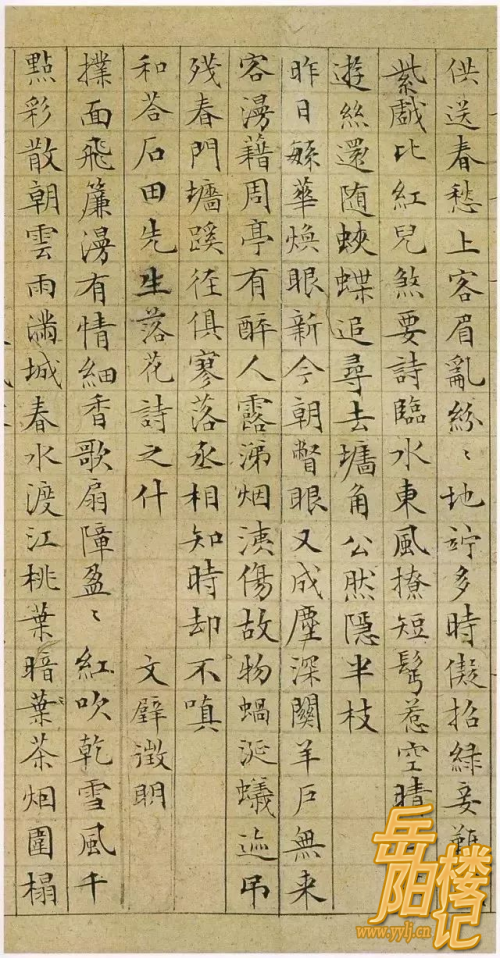 供送春愁上客眉亂紛〻地竚多時儗招綠妾難
戲比紅兒煞要詩臨水東風撩短鬢惹空晴
遊絲還随蛺蝶追尋去墻角公然隱半枝
昨日繁華煥眼新今朝瞥眼又成塵深關羊戶無来
容漫藉周亭有醉人露涕烟洟傷故物蝸涎蟻迹吊
殘春門墻蹊徑俱寥落丞相知時却不嗔
和荅石田先生落花詩之什 文壁徵明
撲面飛簾漫有情細香歌扇障盈〻紅吹乾雪風千
點彩散朝雲雨滿城春水渡江桃葉暗葉茶烟圍榻
岳阳楼记
www.yylj.cn